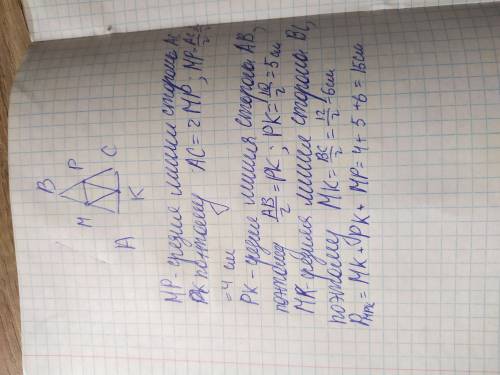 B
M P
A K C
MP-средняя линии стороны AC
PK поэтому AC = 2 MP ; MP = AC/2 =
= 4 см
PK - средняя линия стороны AB,
поэтому AB/2 = PK ; PK = 10/2 = 5 см
MK-средняя линия стороны BC,
поэтому MK = BC/2 = 12/2 = 6см
P MPK = MK + PK + MP = 4 + 5 + 6 = 15см